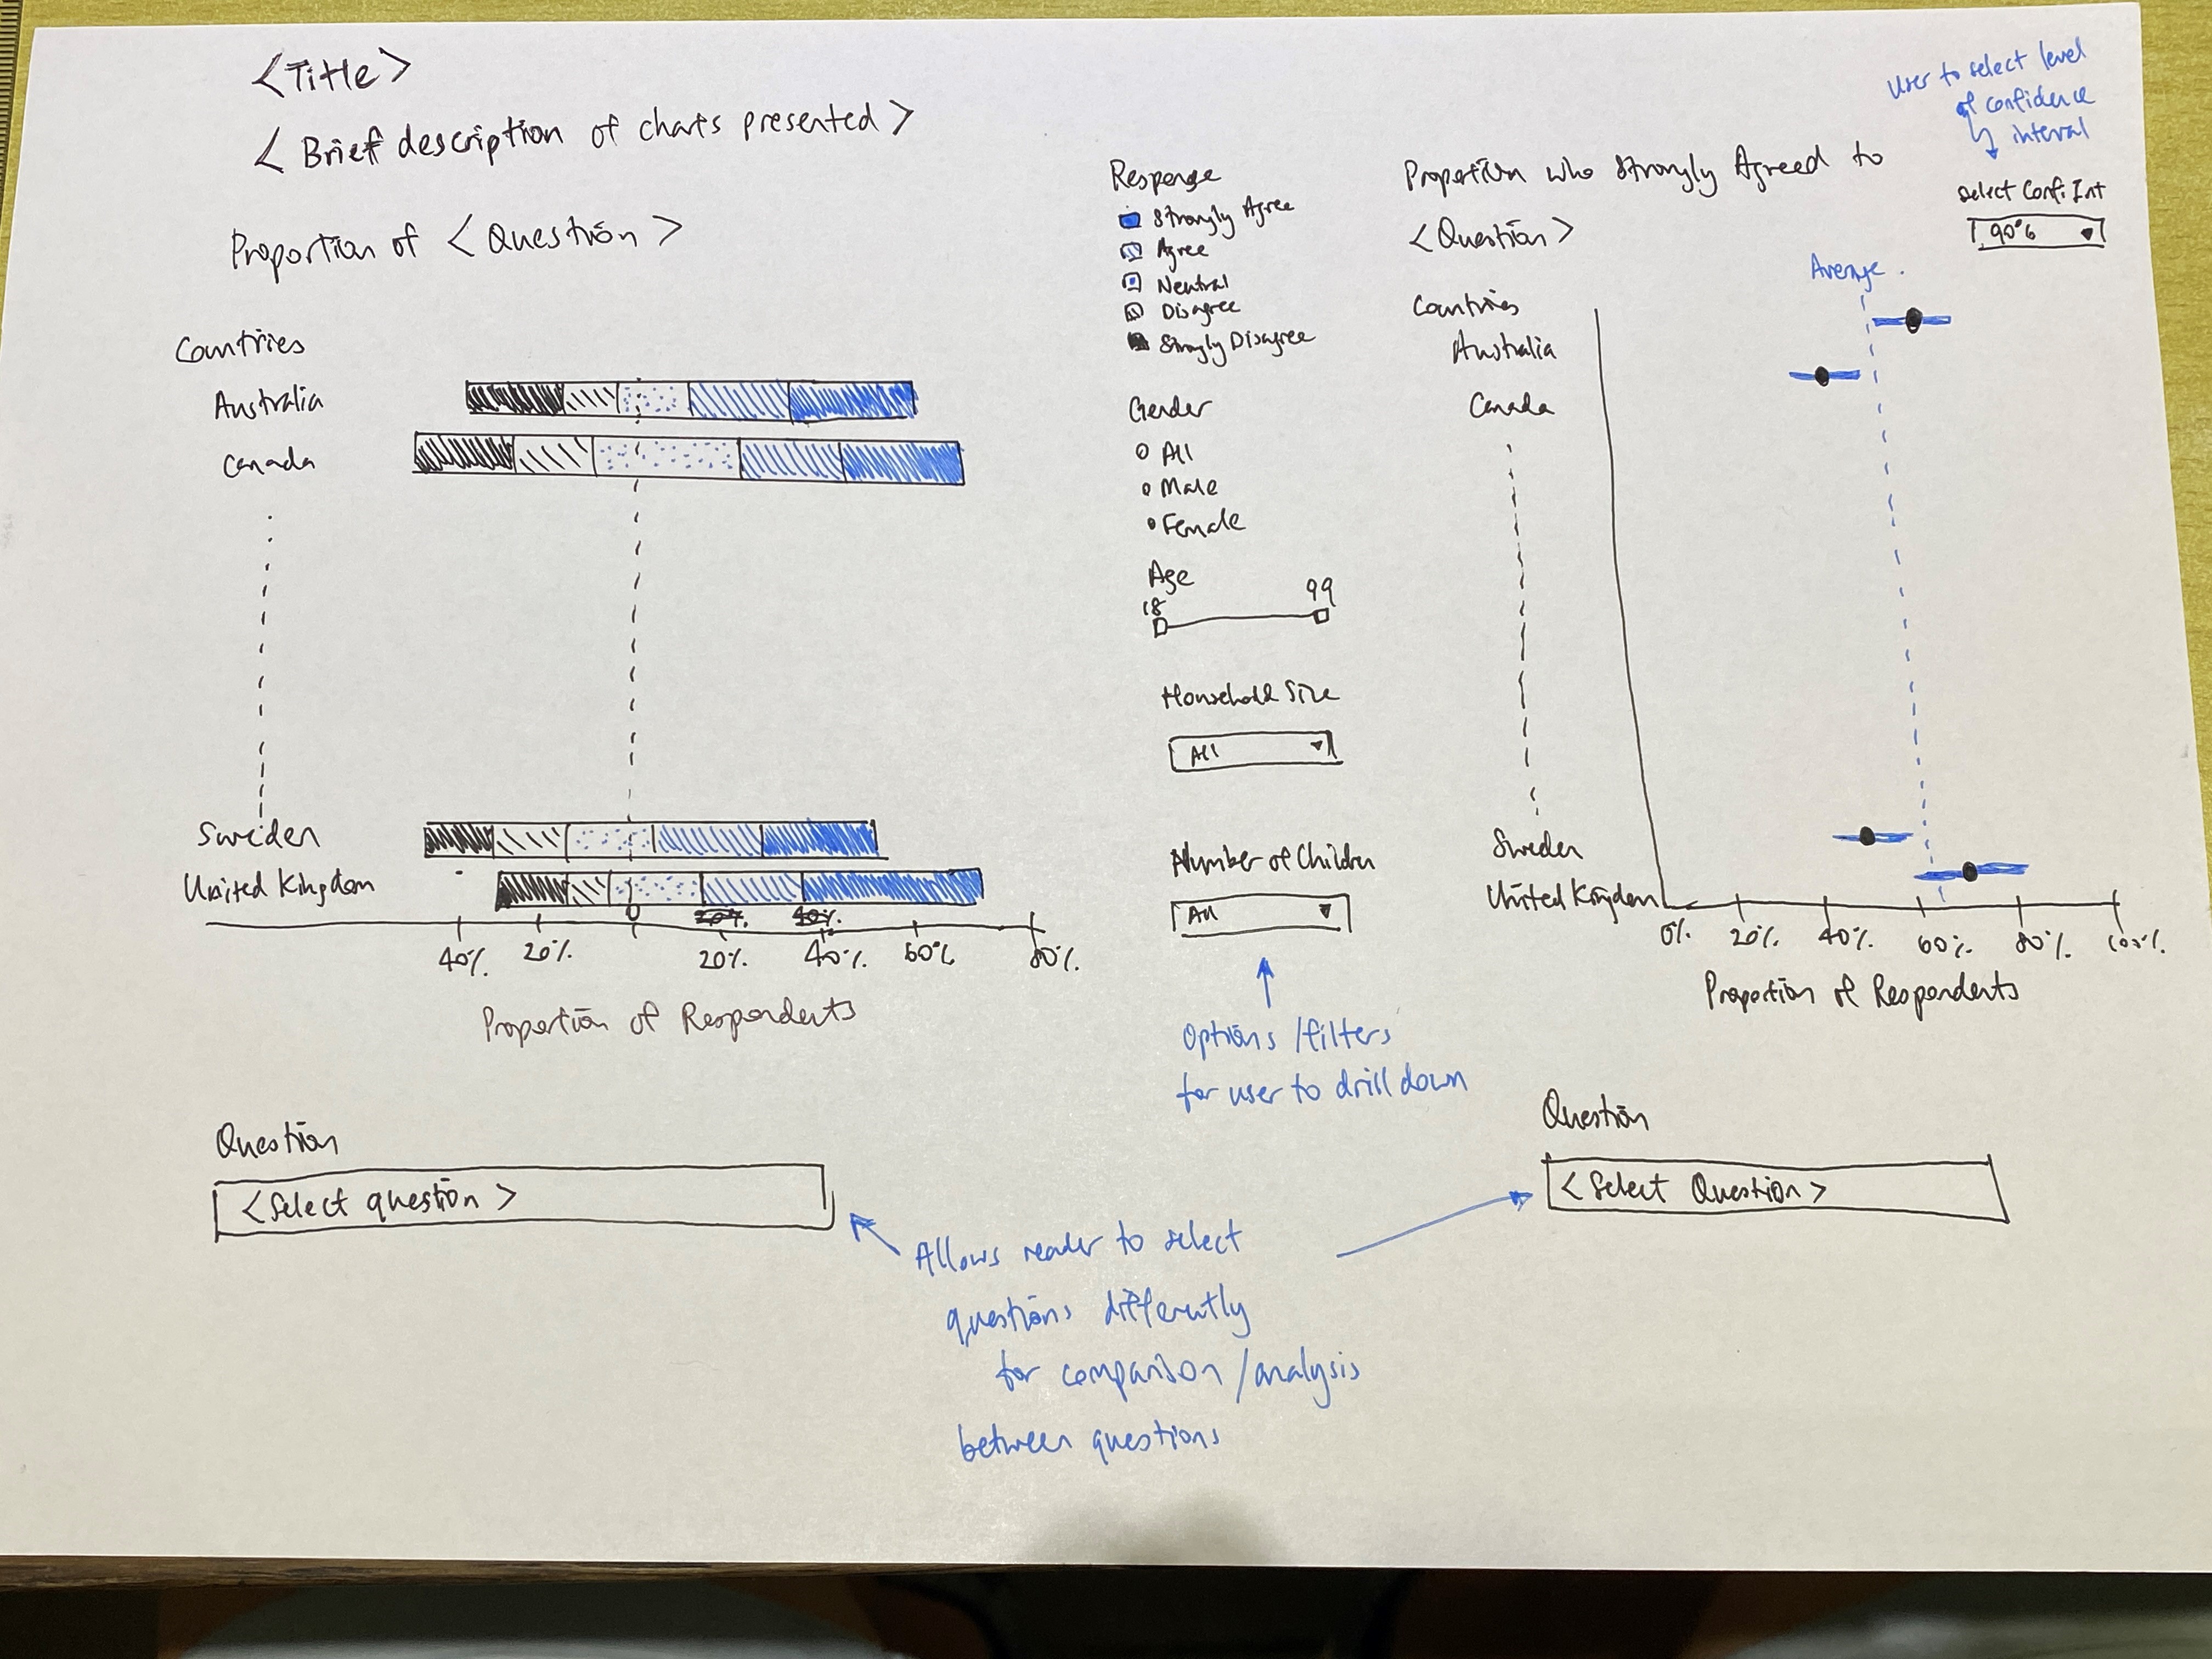 <Title>
< Brief description of charts presented >
Proportion of < Question >
Countries
Australia
Canada
Sweden
United Kingdom
0
20%
40%
40%
20%
20%
40%
60%
80%
Proportion of Respondents
Question
<Select question >
Response
Strongly Agree
Agree
Neutral
Disagree
Strongly Disagree
Gender
All
Male
Female
Age
18
99
Household Size
All
Number of Children
All
Options / filters
for user to drill down
Allows reader to select
questions differently
for comparison / analysis
between questions
Proportion who Strongly Agreed to
<Question>
User to select level
of confidence
interval
Select Conf. Int
90%
Average
Countries
Australia
Canada
Sweden
United Kingdom
0%
20%
40%
60%
80%
100%
Proportion of Respondents
Question
<Select Question>